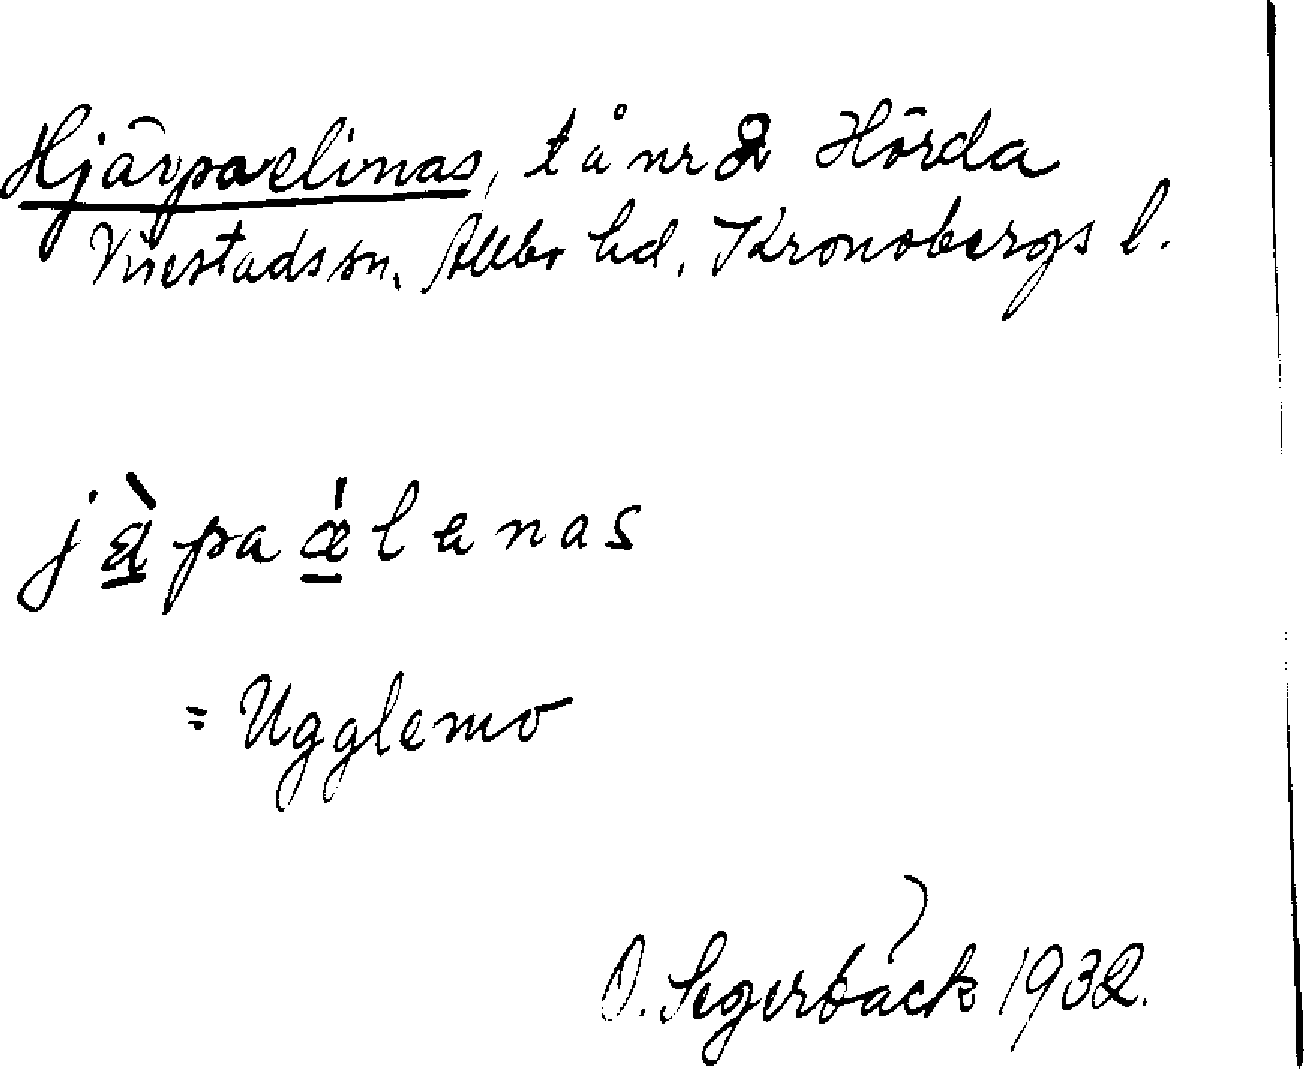 Hjärpaelinas, t å nr 2 Hörda
Virestads sn, Allbo hd, Kronobergs l.
jæ̀paǽlenas
= Ugglemo
O. Segerbäck 1932.